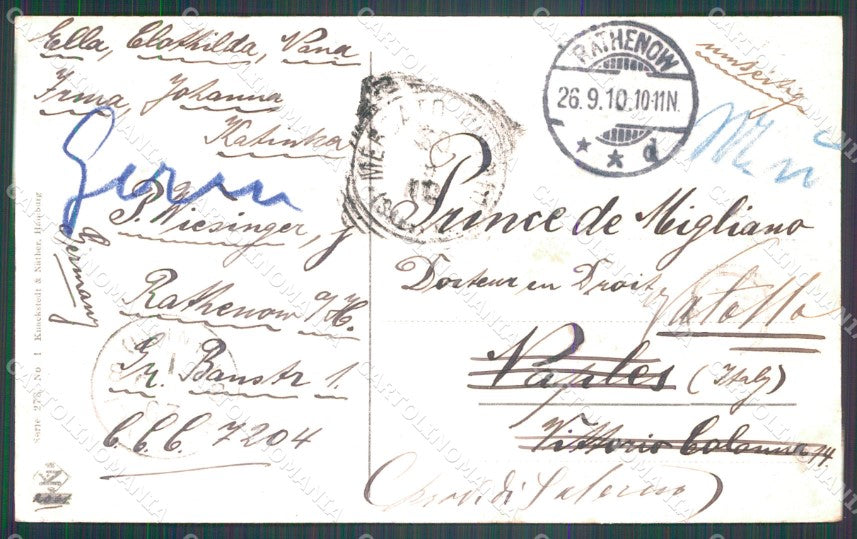 Ella, Clothilda, Nana
Irma, Johanna
Katinka
P. Wiesinger, j
Rathenow a/H.
Gr. Baustr 1.
C.C.C. 7204
Germany
Serie 278, No 1 Knackstedt & Näther, Hamburg
RATHENOW
26.9.10.10-11N.
* * d
MERCATO
Prince de Migliano
Docteur en Droit
Vatolla
Naples (Italy)
Vittorio Colonna 14.
(prov. di Salerno)
CARTOLINOMANIA